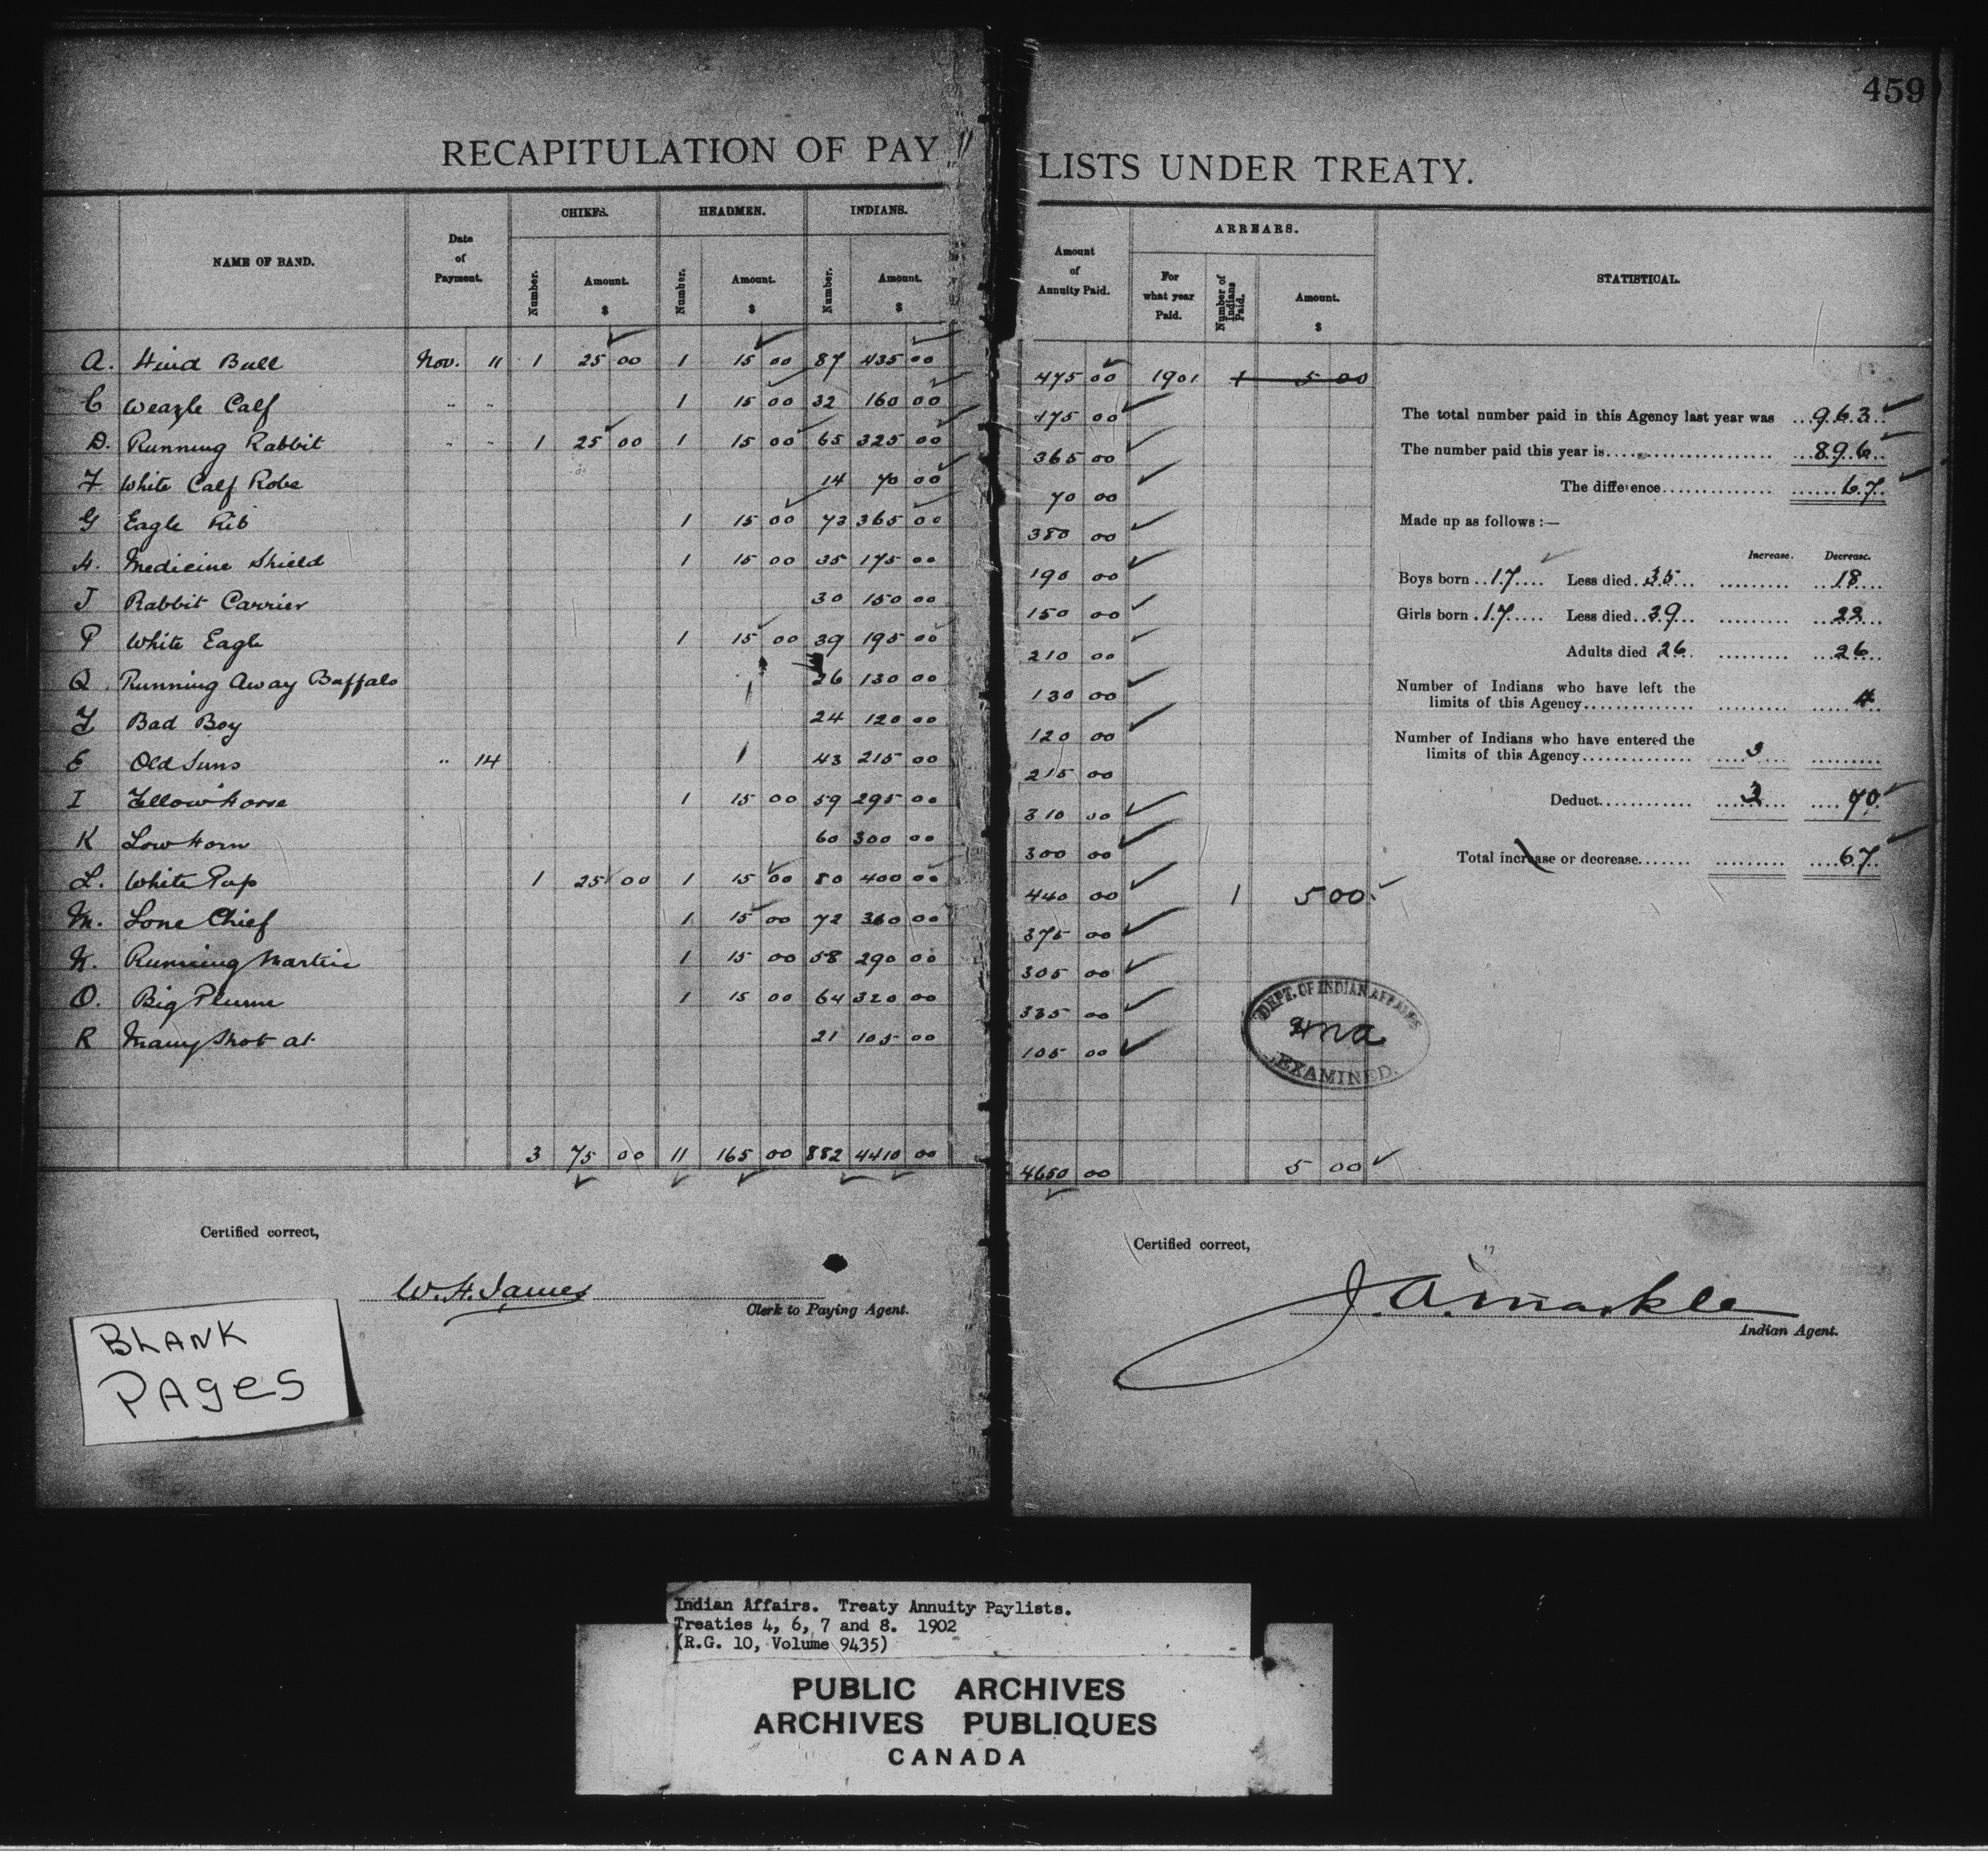 459
RECAPITULATION OF PAY LISTS UNDER TREATY.
NAME OF BAND. Date of Payment. CHIEFS. Number. Amount. $ HEADMEN. Number. Amount. $ INDIANS. Number. Amount. $ Amount of Annuity Paid. ARREARS. For what year Paid. Number of Indians Paid. Amount. $ STATISTICAL.
A. Hind Bull Nov. 11 1 25 00 1 15 00 87 435 00 475 00 1901 1 5 00
C Weazle Calf " " 1 15 00 32 160 00 175 00
D. Running Rabbit " " 1 25 00 1 15 00 65 325 00 365 00
F White Calf Robe 14 70 00 70 00
G Eagle Rib 1 15 00 73 365 00 380 00
H. Medicine Shield 1 15 00 35 175 00 190 00
J Rabbit Carrier 30 150 00 150 00
P White Eagle 1 15 00 39 195 00 210 00
Q. Running Away Buffalo 26 130 00 130 00
Bad Boy 24 120 00 120 00
E Old Suns " 14 43 215 00 215 00
I Yellow Horse 1 15 00 59 295 00 310 00
K Low Horn 60 300 00 300 00
L. White Pup 1 25 00 1 15 00 80 400 00 440 00 1 5 00
M. Lone Chief 1 15 00 72 360 00 375 00
N. Running Martin 1 15 00 58 290 00 305 00
O. Big Plume 1 15 00 64 320 00 335 00
R Many Shot at 21 105 00 105 00
3 75 00 11 165 00 882 4410 00 4650 00 5 00
The total number paid in this Agency last year was 963
The number paid this year is 896
The difference 67
Made up as follows :—
Increase. Decrease.
Boys born 17 Less died 35 18
Girls born 17 Less died 39 22
Adults died 26 26
Number of Indians who have left the
limits of this Agency 4
Number of Indians who have entered the
limits of this Agency 3
Deduct 3 70
Total increase or decrease 67
DEPT. OF INDIAN AFFAIRS
EXAMINED.
Certified correct,
W. H. James
Clerk to Paying Agent.
Certified correct,
J. A. Markle
Indian Agent.
BLANK
PAGES
Indian Affairs. Treaty Annuity Paylists.
Treaties 4, 6, 7 and 8. 1902
(R.G. 10, Volume 9435)
PUBLIC ARCHIVES
ARCHIVES PUBLIQUES
CANADA